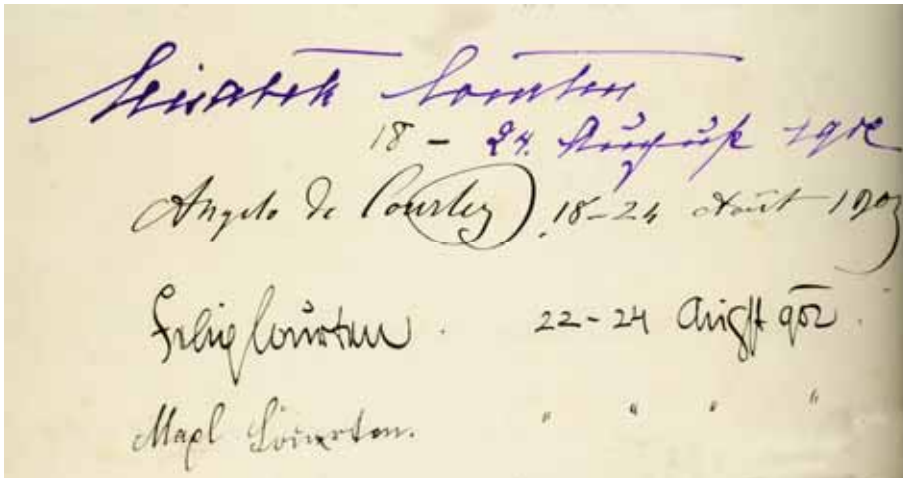 Elisabeth Courten
18 - 24. August 1902
Angelo de Courten 18-24 Août 1902
Felix Courten. 22-24 Augst 902.
Courten. " " " "